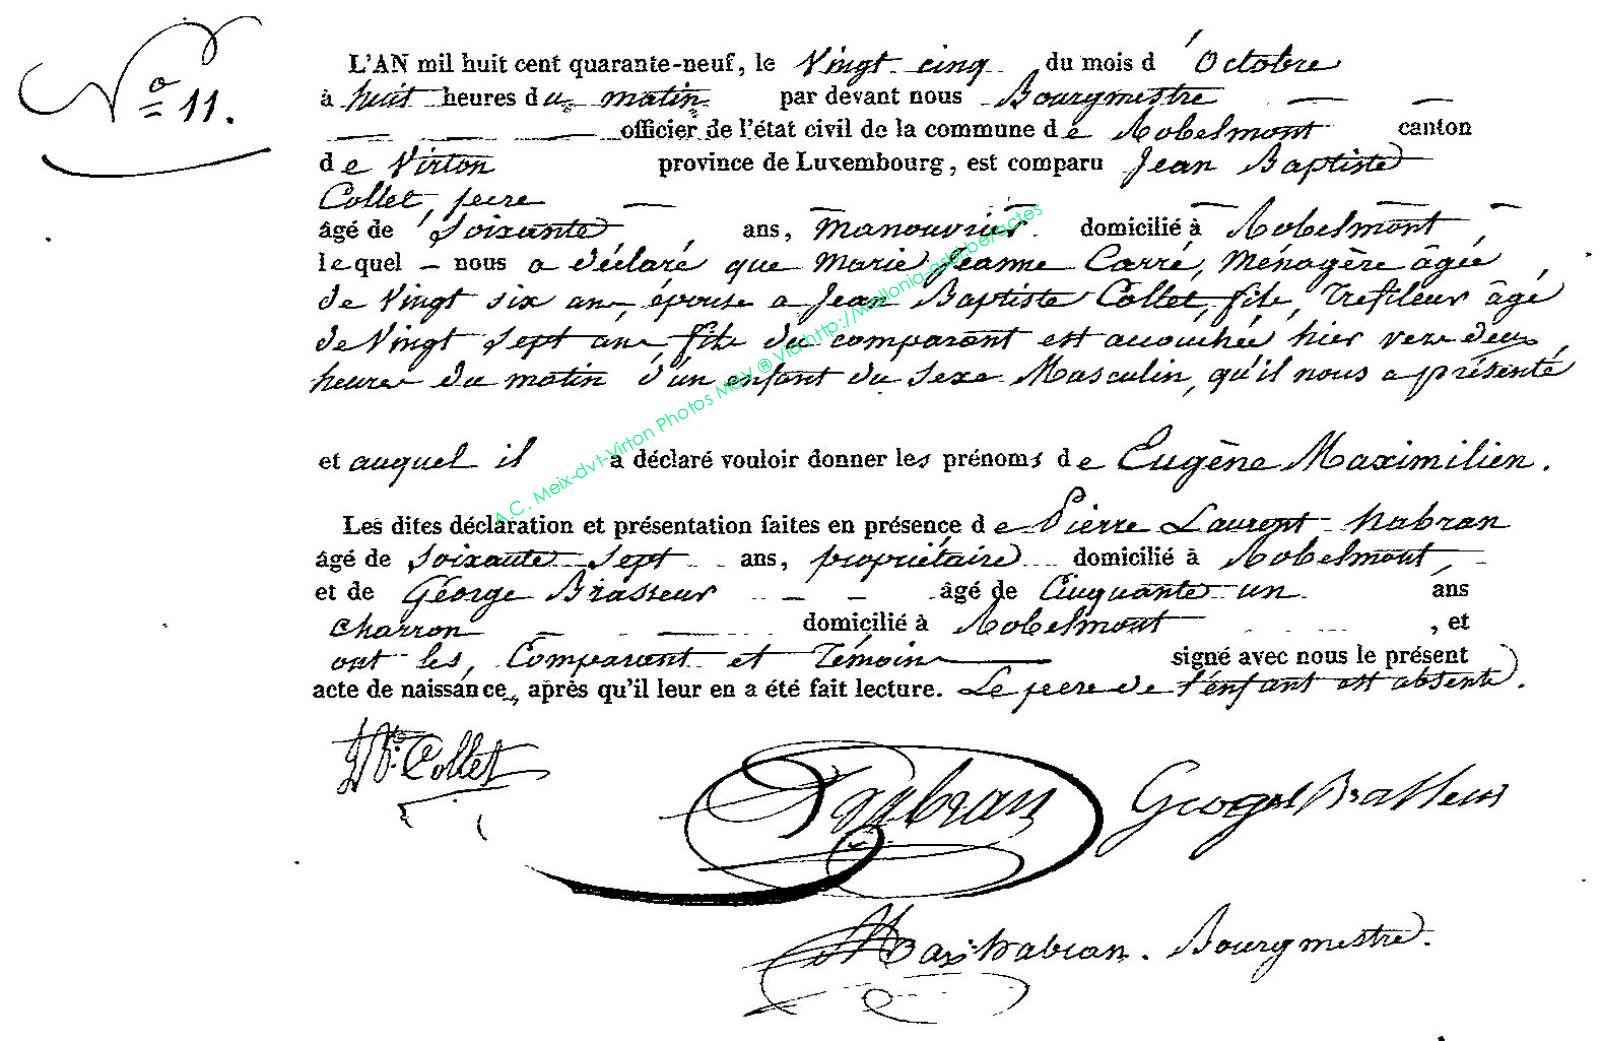 N° 11.
L'AN mil huit cent quarante-neuf, le Vingt cinq du mois d'Octobre
à huit heures du matin par devant nous Bourgmestre
officier de l'état civil de la commune de Robelmont canton
de Virton province de Luxembourg, est comparu Jean Baptiste
Collet, pere
âgé de Soixante ans, Manouvrier domicilié à Robelmont,
lequel nous a déclaré que Marie Jeanne Carré, Ménagère âgée,
de Vingt six ans, épouse a Jean Baptiste Collet, fils, Trefileur âgé
de Vingt Sept ans, fils du comparant est accouchée hier vers deux
heures du matin d'un enfant du sexe Masculin, qu'il nous a présenté
et auquel il a déclaré vouloir donner les prénoms de Eugène Maximilien.
Les dites déclaration et présentation faites en présence de Pierre Laurent habran
âgé de Soixante Sept ans, propriétaire domicilié à Robelmont,
et de George Brasseur âgé de Cinquante un ans
Charron domicilié à Robelmont, et
ont les, Comparant et Témoins signé avec nous le présent
acte de naissance, après qu'il leur en a été fait lecture. Le pere de l'enfant est absent.
Collet
habran
George Brasseur
habran. Bourgmestre.
A.C. Meix-dvt-Virton Photos MGV ® Via http://wallonia-asbl.be/actes